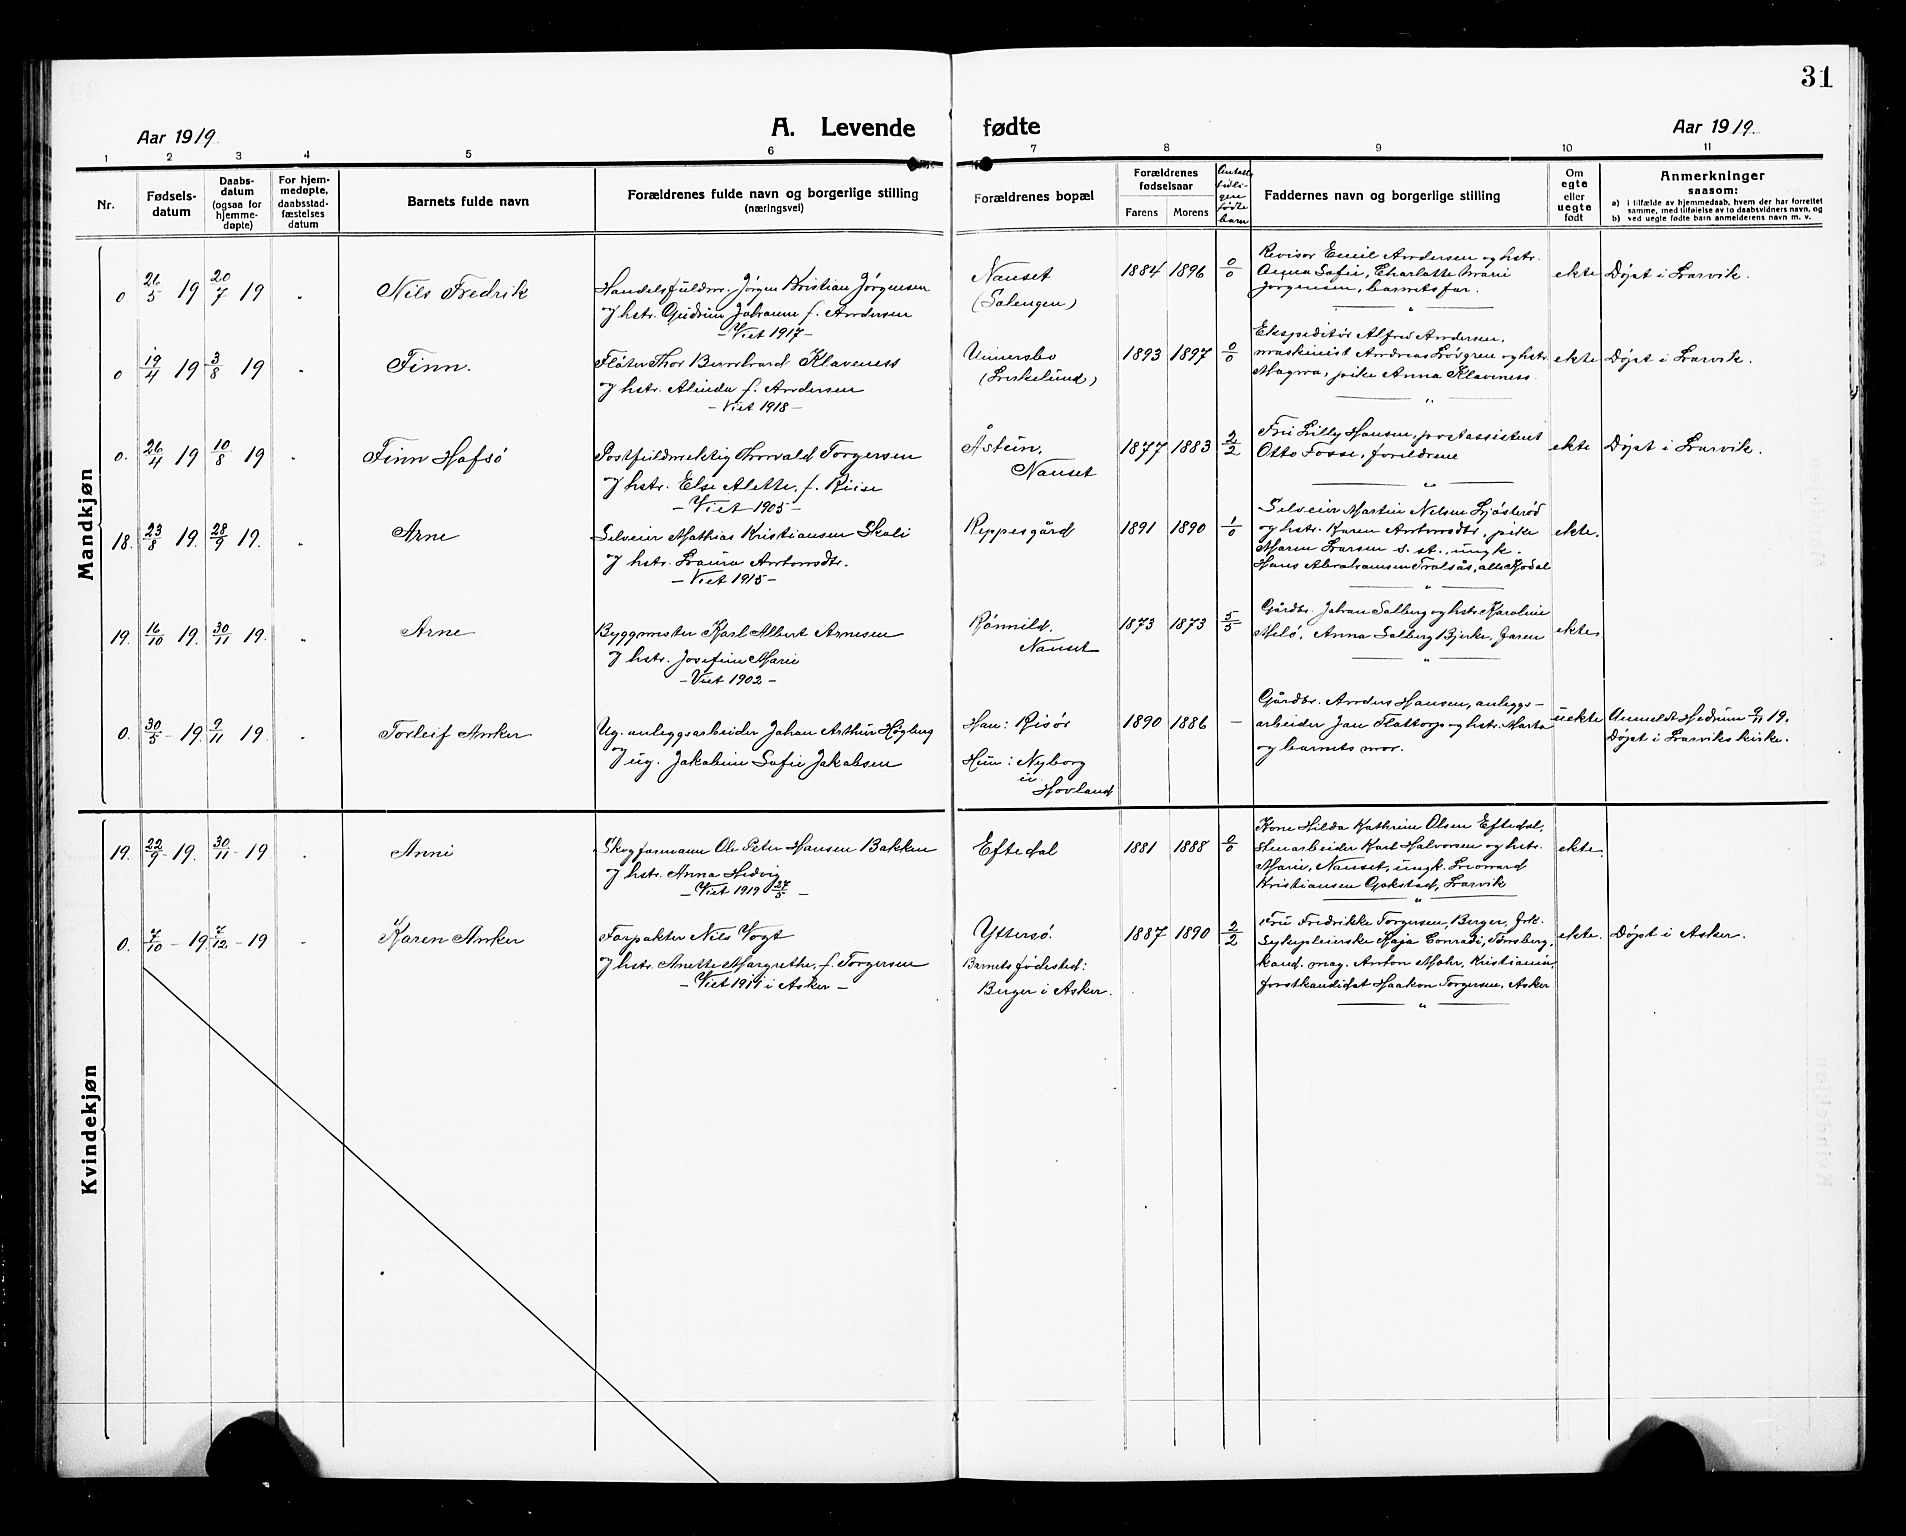 31
Aar 1919. A. Levende fødte Aar 1919.
1 2 3 4 5 6 7 8 9 10 11
Nr.
Fødsels-
datum
Daabs-
datum
(ogsaa for
hjemme-
døpte)
For hjem-
medøpte,
daabsstad-
fæstelses
datum
Barnets fulde navn
Forældrenes fulde navn og borgerlige stilling
(næringsvei)
Forældrenes bopæl
Forældrenes
fødselsaar
Farens Morens
Antall
tidli-
gere
fødte
barn
Faddernes navn og borgerlige stilling
Om
egte
eller
uegte
født
Anmerkninger
saasom:
a) i tilfælde av hjemmedaab, hvem der har forrettet
samme, med tilføielse av to daabsvidners navn, og
b) ved uegte fødte barn anmelderens navn m. v.
Mandkjøn
0. 26/5 19 20/7 19 " Nils Fredrik
Handelsfuldm. Jørgen Kristian Jørgensen
og hstr. Gudrun Johanne f. Andersen
- Viet 1917 -
Nanset
(Salengen)
1884 1896 0/0
Revisor Emil Andersen og hstr.
Anna Sofie, Charlotte Marie
Jørgensen, barnets far.
ekte Døpt i Larvik.
0 19/4 19 3/8 19 " Finn.
Fløter Thor Bernhard Klaveness
og hstr. Alinda f. Andersen
- Viet 1918 -
Unnersbo
(Lerkelund)
1893 1897 0/0
Ekspeditør Alfred Andersen,
maskinist Andreas Løvgren og hstr.
Magna, pike Anna Klaveness.
ekte Døpt i Larvik.
0. 26/4 19 10/8 19 " Finn Hafsø
Postfuldmektig Thorvald Torgersen
og hstr. Else Alette, f. Riise
- Viet 1905 -
Åstein,
Nanset
1877 1883 2/2
Fru Lilly Hansen, postassistent
Otto Fosse, foreldrene
ekte Døpt i Larvik.
18. 23/8 19. 28/9 19. " Arne
Selveier Mathias Kristiansen Skali
og hstr. Laura Antonsdtr.
- Viet 1915 -
Reppesgård
1891 1890 1/0
Selveier Martin Nilsen Ljøsterød
og hstr. Karen Antonsdtr, pike
Maren Larsen s. st., ungk.
Hans Abrahamsen Trolsås, alle Kodal
ekte.
19. 16/10 19. 30/11 19. " Arne
Byggmester Karl Albert Arnesen
og hstr. Josefine Marie
- Viet 1902 -
Rønnild,
Nanset
1873 1873 5/5
Gårdbr. Johan Solberg og hstr. Karoline
Melø, Anna Solberg Bjerke, faren
ekte
0. 30/5 - 19. 9/11 19. " Torleif Anker
Ug. anleggsarbeider Johan Arthur Høgberg
og ug. Jakobine Sofie Jakobsen
Han: Risør
Hun: Nyborg
u.
Hovland
1890 1886 -
Gårdbr. Anders Hansen, anleggs-
arbeider Jan Flattorp og hstr. Marta
og barnets mor.
uekte Anmeldt Hedrum 9/11 19.
Døpt i Larviks kirke.
Kvindekjøn
19. 22/9 - 19. 30/11 - 19 " Anni
Skogformann Ole Peter Hansen Bakken
og hstr. Anna Hedvig
- Viet 1919 27/5 -
Eftedal
1881 1888 0/0
Kone Hilda Kathrine Olsen Eftedal,
Stenarbeider Karl Halvorsen og hstr.
Marie, Nanset, ungk. Leonard
Kristiansen Opkstad, Larvik
ekte.
0. 7/10 - 19. 7/12 - 19 " Karen Anker
Forpakter Nils Vogt
og hstr. Anette Margrethe, f. Torgersen
- Viet 1911 i Asker -
Yttersø.
Barnets fødested:
Berger i Asker.
1887 1890 2/2
Fru Fredrikke Torgersen, Berger, frk.
Sykepleierske Kaja Conradi, Tønsberg,
kand. mag. Anton Mohr, Kristiania,
forstkandidat Haakon Torgersen, Asker
ekte. Døpt i Asker.